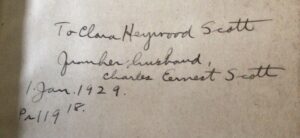 To Clara Heywood Scott
From her husband,
Charles Ernest Scott
1. Jan. 1929.
Ps 119 18.